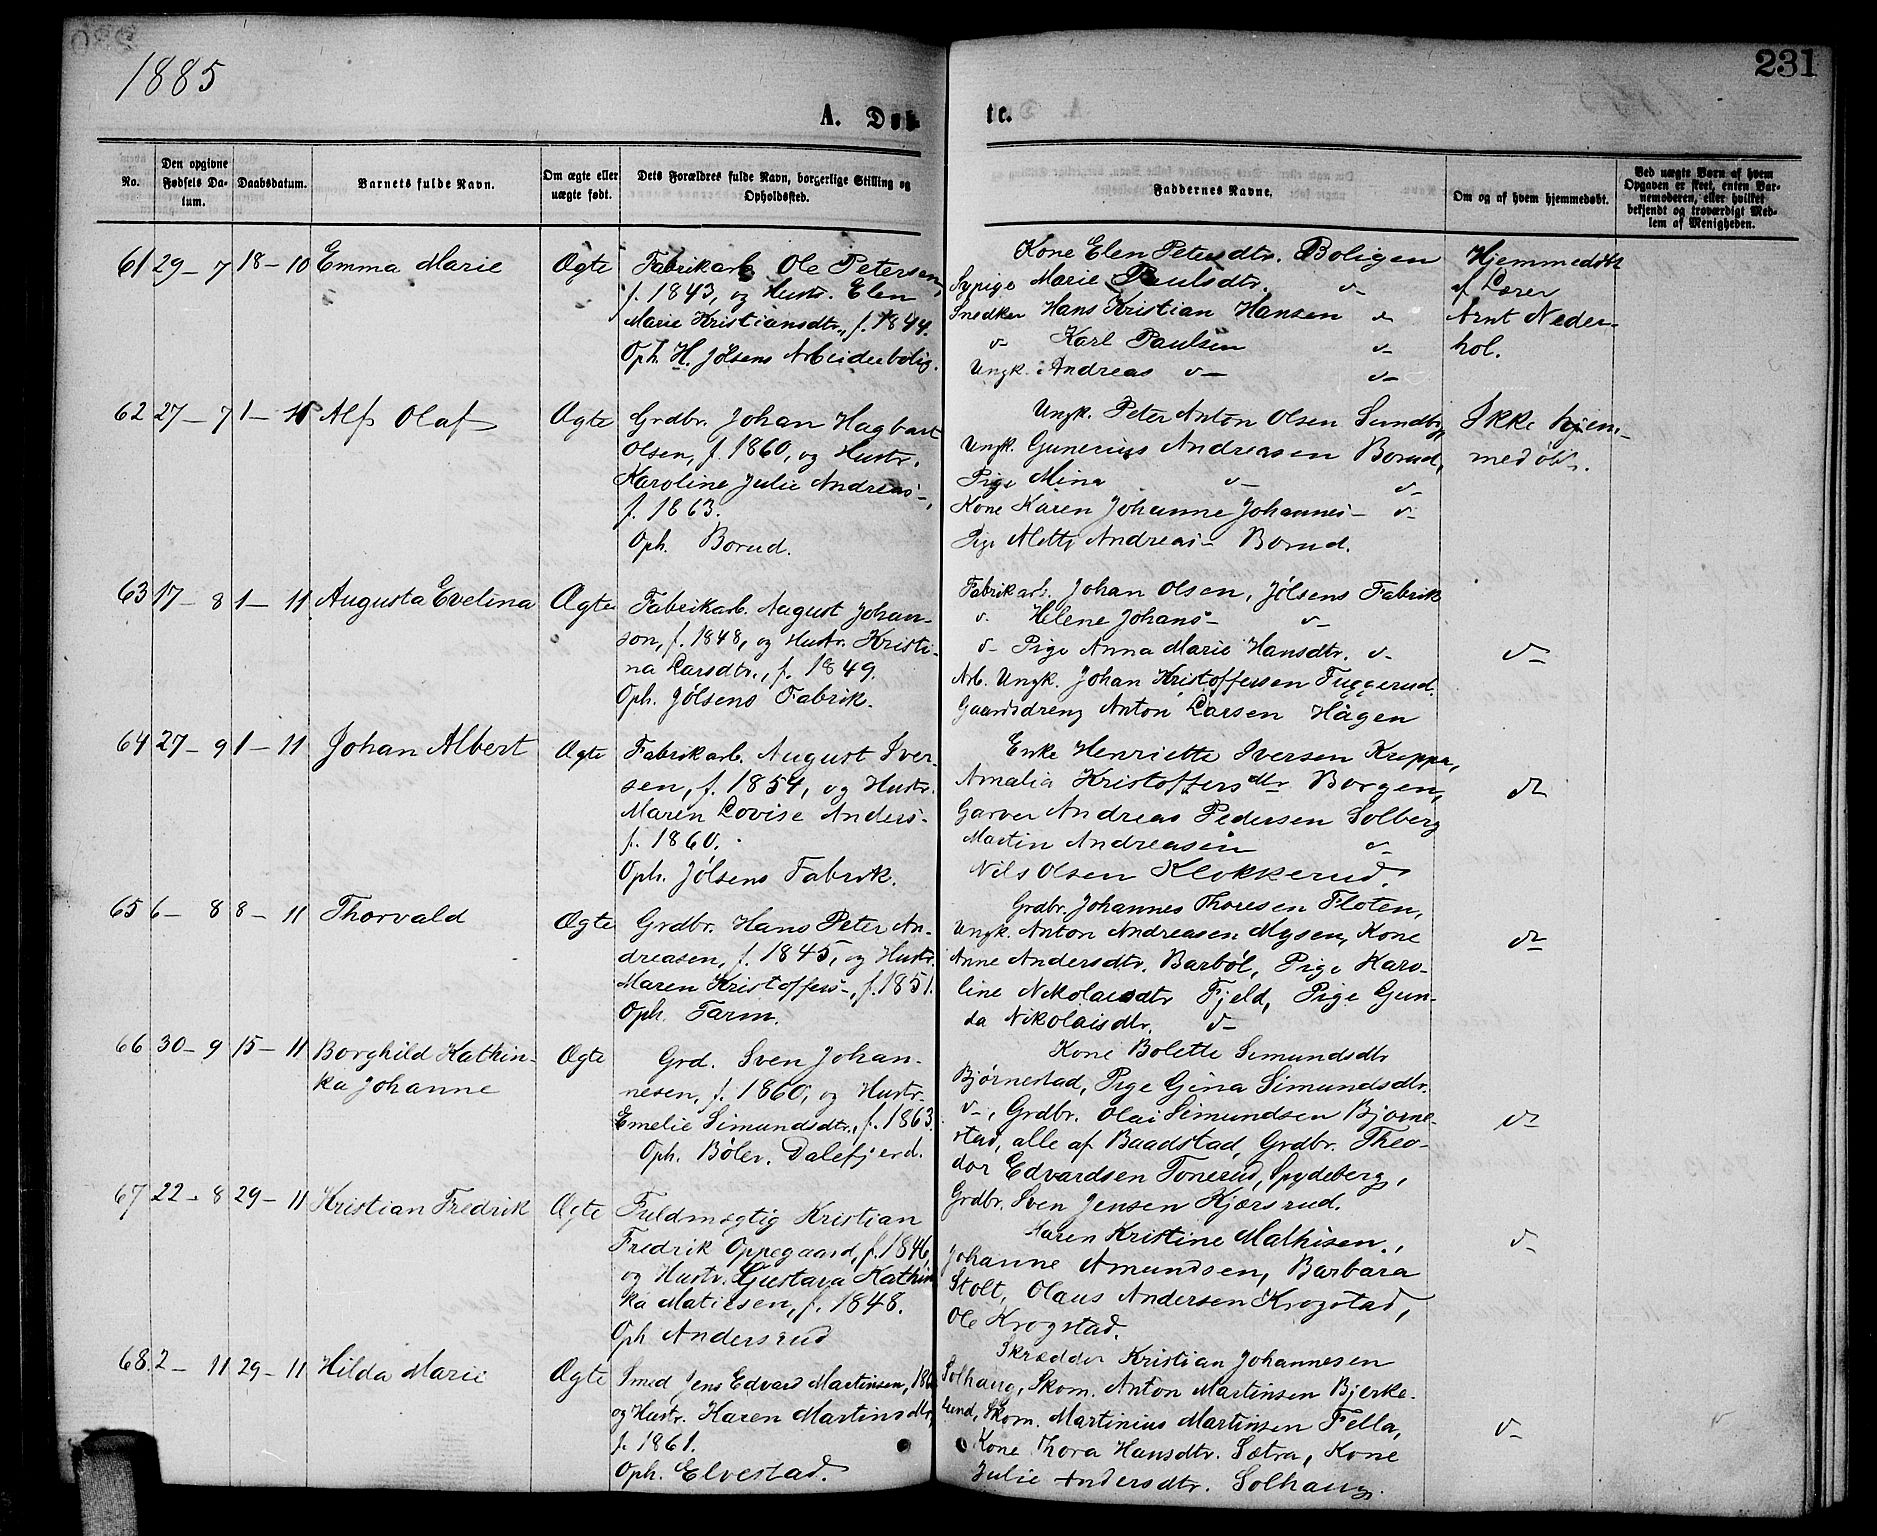 1885
231
A. Døb
te.
No.
Den opgivne Fødsels Datum.
Daabsdatum.
Barnets fulde Navn.
Om ægte eller uægte født.
Dets Forældres fulde Navn, borgerlige Stilling og Opholdssted.
Faddernes Navne.
Om og af hvem hjemmedøbt.
Ved uægte Børn af hvem Opgaven er skeet, enten Barnemoderen, eller hvilket bekjendt og troværdigt Medlem af Menigheden.
61 29 - 7 18 - 10 Emma Marie Ægte
Fabrikarb Ole Petersen,
f. 1843, og Hustr. Elen
Marie Kristiansdtr., f. 1844.
Oph. H. Jølsens Arbeiderbolig.
Kone Elen Petersdtr. Boligen
Sypige Marie Paulsdtr. v-
Snedker Hans Kristian Hansen v-
v- Karl Paulsen v-
Ungk. Andreas v- v-
Hjemmedøbt
af Lærer
Arnt Neder-
hol.
62 27 - 7 1 - 11 Alf Olaf Ægte
Grdbr. Johan Hagbart
Olsen, f. 1860, og Hustr.
Karoline Julie Andreas-,
f. 1863.
Oph. Borud.
Ungk. Peter Anton Olsen Sundby,
Ungk. Gunerius Andreasen Borud,
Pige Mina v- v-
Kone Karen Johanne Johannes- v-
Pige Alette Andreas- Borud.
Ikke hjem-
medøbt.
63 17 - 8 1 - 11 Augusta Evelina Ægte
Fabrikarb. August Johan-
son, f. 1848, og Hustr. Kristi-
na Larsdtr., f. 1849.
Oph. Jølsens Fabrik.
Fabrikarb. Johan Olsen, Jølsens Fabrik
v. Helene Johans- v-
v- Pige Anna Marie Hansdtr. v-
Arb. Ungk. Johan Kristoffersen Tuggerud.
Gaardsdreng Anton Larsen Hagen
v-
64 27 - 9 1 - 11 Johan Albert Ægte
Fabrikarb. August Iver-
sen, f. 1854, og Hustr.
Maren Lovise Anders-
f. 1860.
Oph. Jølsens Fabrik.
Enke Henriette Iversen Kreppa,
Amalia Kristoffersdtr. Borgen,
Garver Andreas Pedersen Solberg
Martin Andreasen v-
Nils Olsen Klokkerud.
v-
65 6 - 8 8 - 11 Thorvald Ægte
Grdbr. Hans Peter An-
dreasen, f. 1845, og Hustr.
Maren Kristoffers-, f. 1851.
Oph. Tarm.
Grdbr. Johannes Thoresen Floten,
Ungk. Anton Andreasen Mysen, Kone
Anne Andersdtr. Barbøl, Pige Karo-
line Nikolaisdtr Fjeld, Pige Gun-
da Nikolaisdtr. v-
v-
66 30 - 9 15 - 11 Borghild Kathin-
ka Johanne
Ægte
Grd. Sven Johan-
nesen, f. 1860, og Hustr.
Emelie Simundsdtr., f. 1863.
Oph. Bøler. Dalefjerd.
Kone Bolette Simundsdtr
Bjørnestad, Pige Gina Simundsdtr.
v-, Grdbr. Olai Simundsen Bjørne-
stad, alle af Baadstad, Grdbr. Theo-
dor Edvardsen Tonerud, Spydeberg,
Grdbr. Sven Jensen Kjærsrud.
v-
67 22 - 8 29 - 11 Kristian Fredrik Ægte
Fuldmægtig Kristian
Fredrik Oppegaard, f. 1846,
og Hustr. Gustava Kathin
ka Matiesen, f. 1848.
Oph Andersrud
Maren Kristine Mathisen,
Johanne Amundsen, Barbara
Stolt, Olaus Andersen Krogstad,
Ole Krogstad.
v-
68. 2 - 11 29 - 11 Hilda Marie Ægte
Smed Jens Edvard Martinsen,
og Hustr. Karen Martinsdtr,
f. 1861.
Oph. Elvestad.
Skrædder Kristian Johannesen
Solhaug, Skom. Anton Martinsen Bjerke-
lund, Skom. Martinius Martinsen Fella,
Kone Thora Hansdtr. Sætra, Kone
Julie Andersdtr. Solhaug.
v-